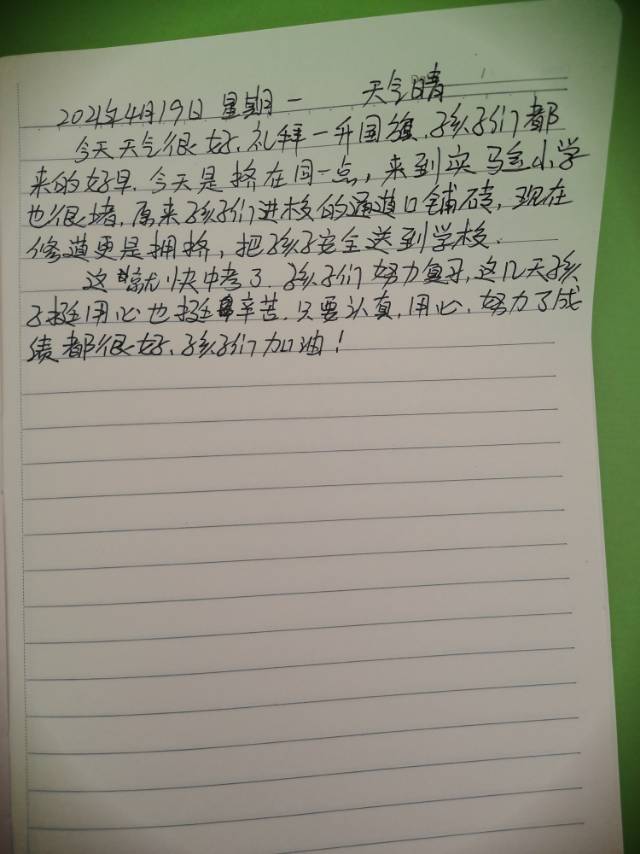 2021年4月19日 星期一 天气晴
今天天气很好,礼拜一升国旗,孩子们都
来的好早,今天是挤在同一点,来到实马金小学
也很堵,原来孩子们进校的通道口铺砖,现在
修道更是拥挤,把孩子安全送到学校.
这就快中考了.孩子们努力复习,这几天孩
子挺用心也挺辛苦.只要认真,用心,努力了成
绩都很好、孩子们加油!